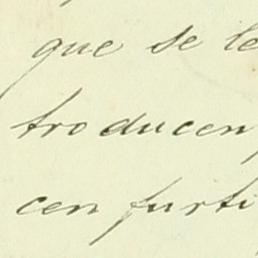 que se le
troducen
cen furti